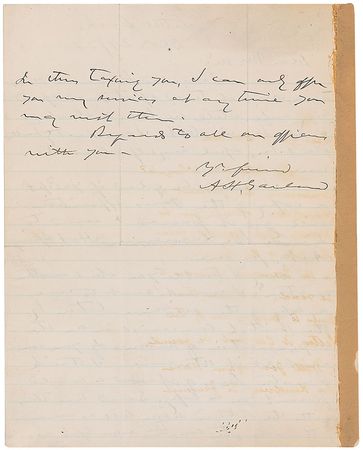 In thus taxing you, I can only offer
you my services at any time you
may wish them.
Regards to all our officers
with you—
Yr friend
A H Garland